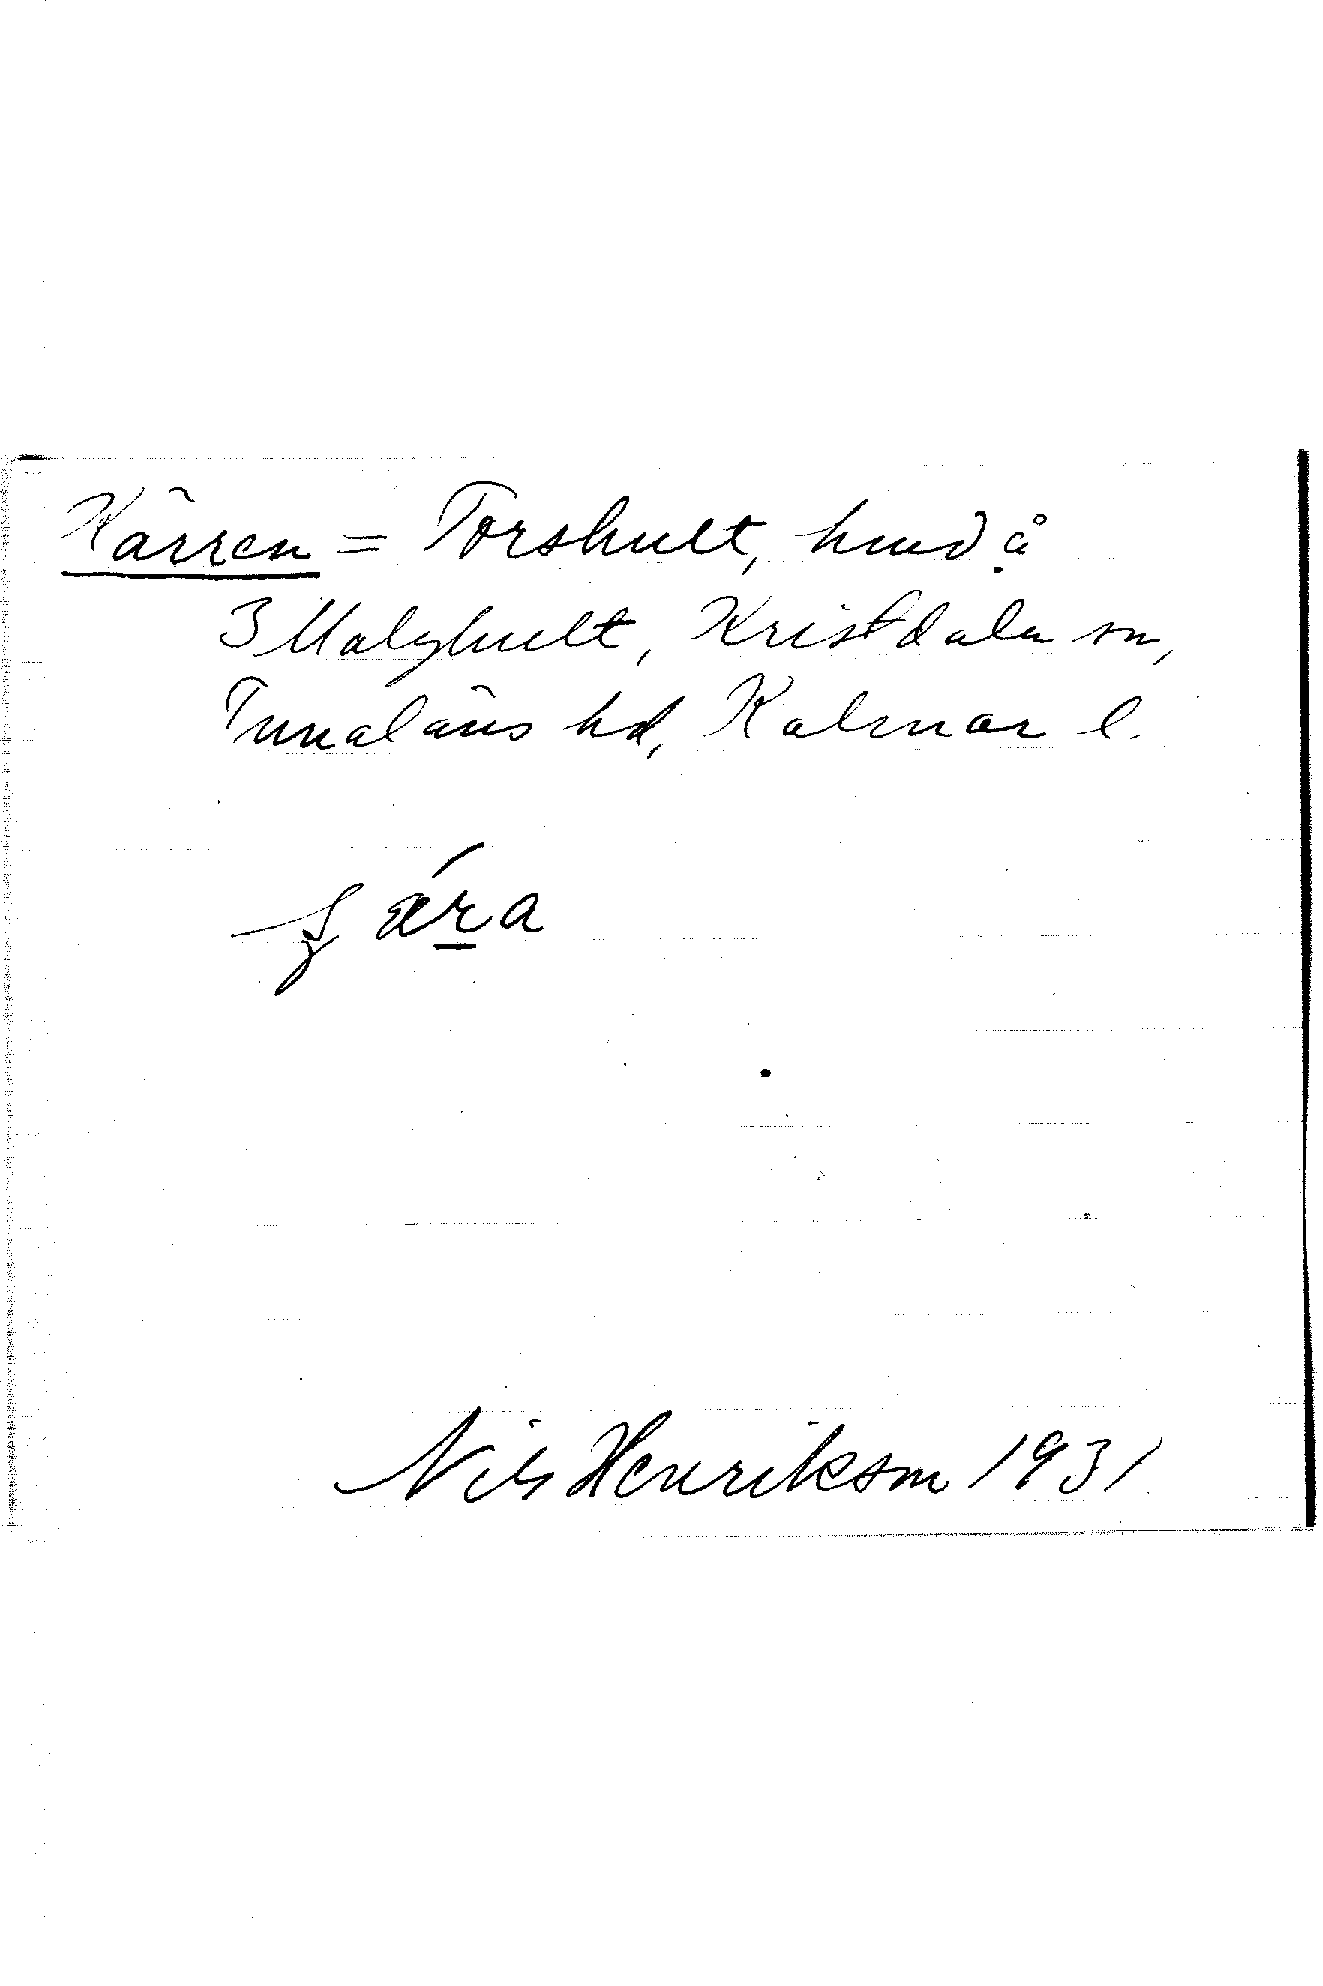 Kärren = Torshult, hmd å
3 Malghult, Kristdala sn,
Tunaläns hd, Kalmar l.
ǽra
Nils Henrikson 1931